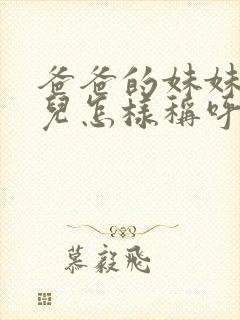 爸爸的妹妹
兒怎樣稱呼
慕毅飛